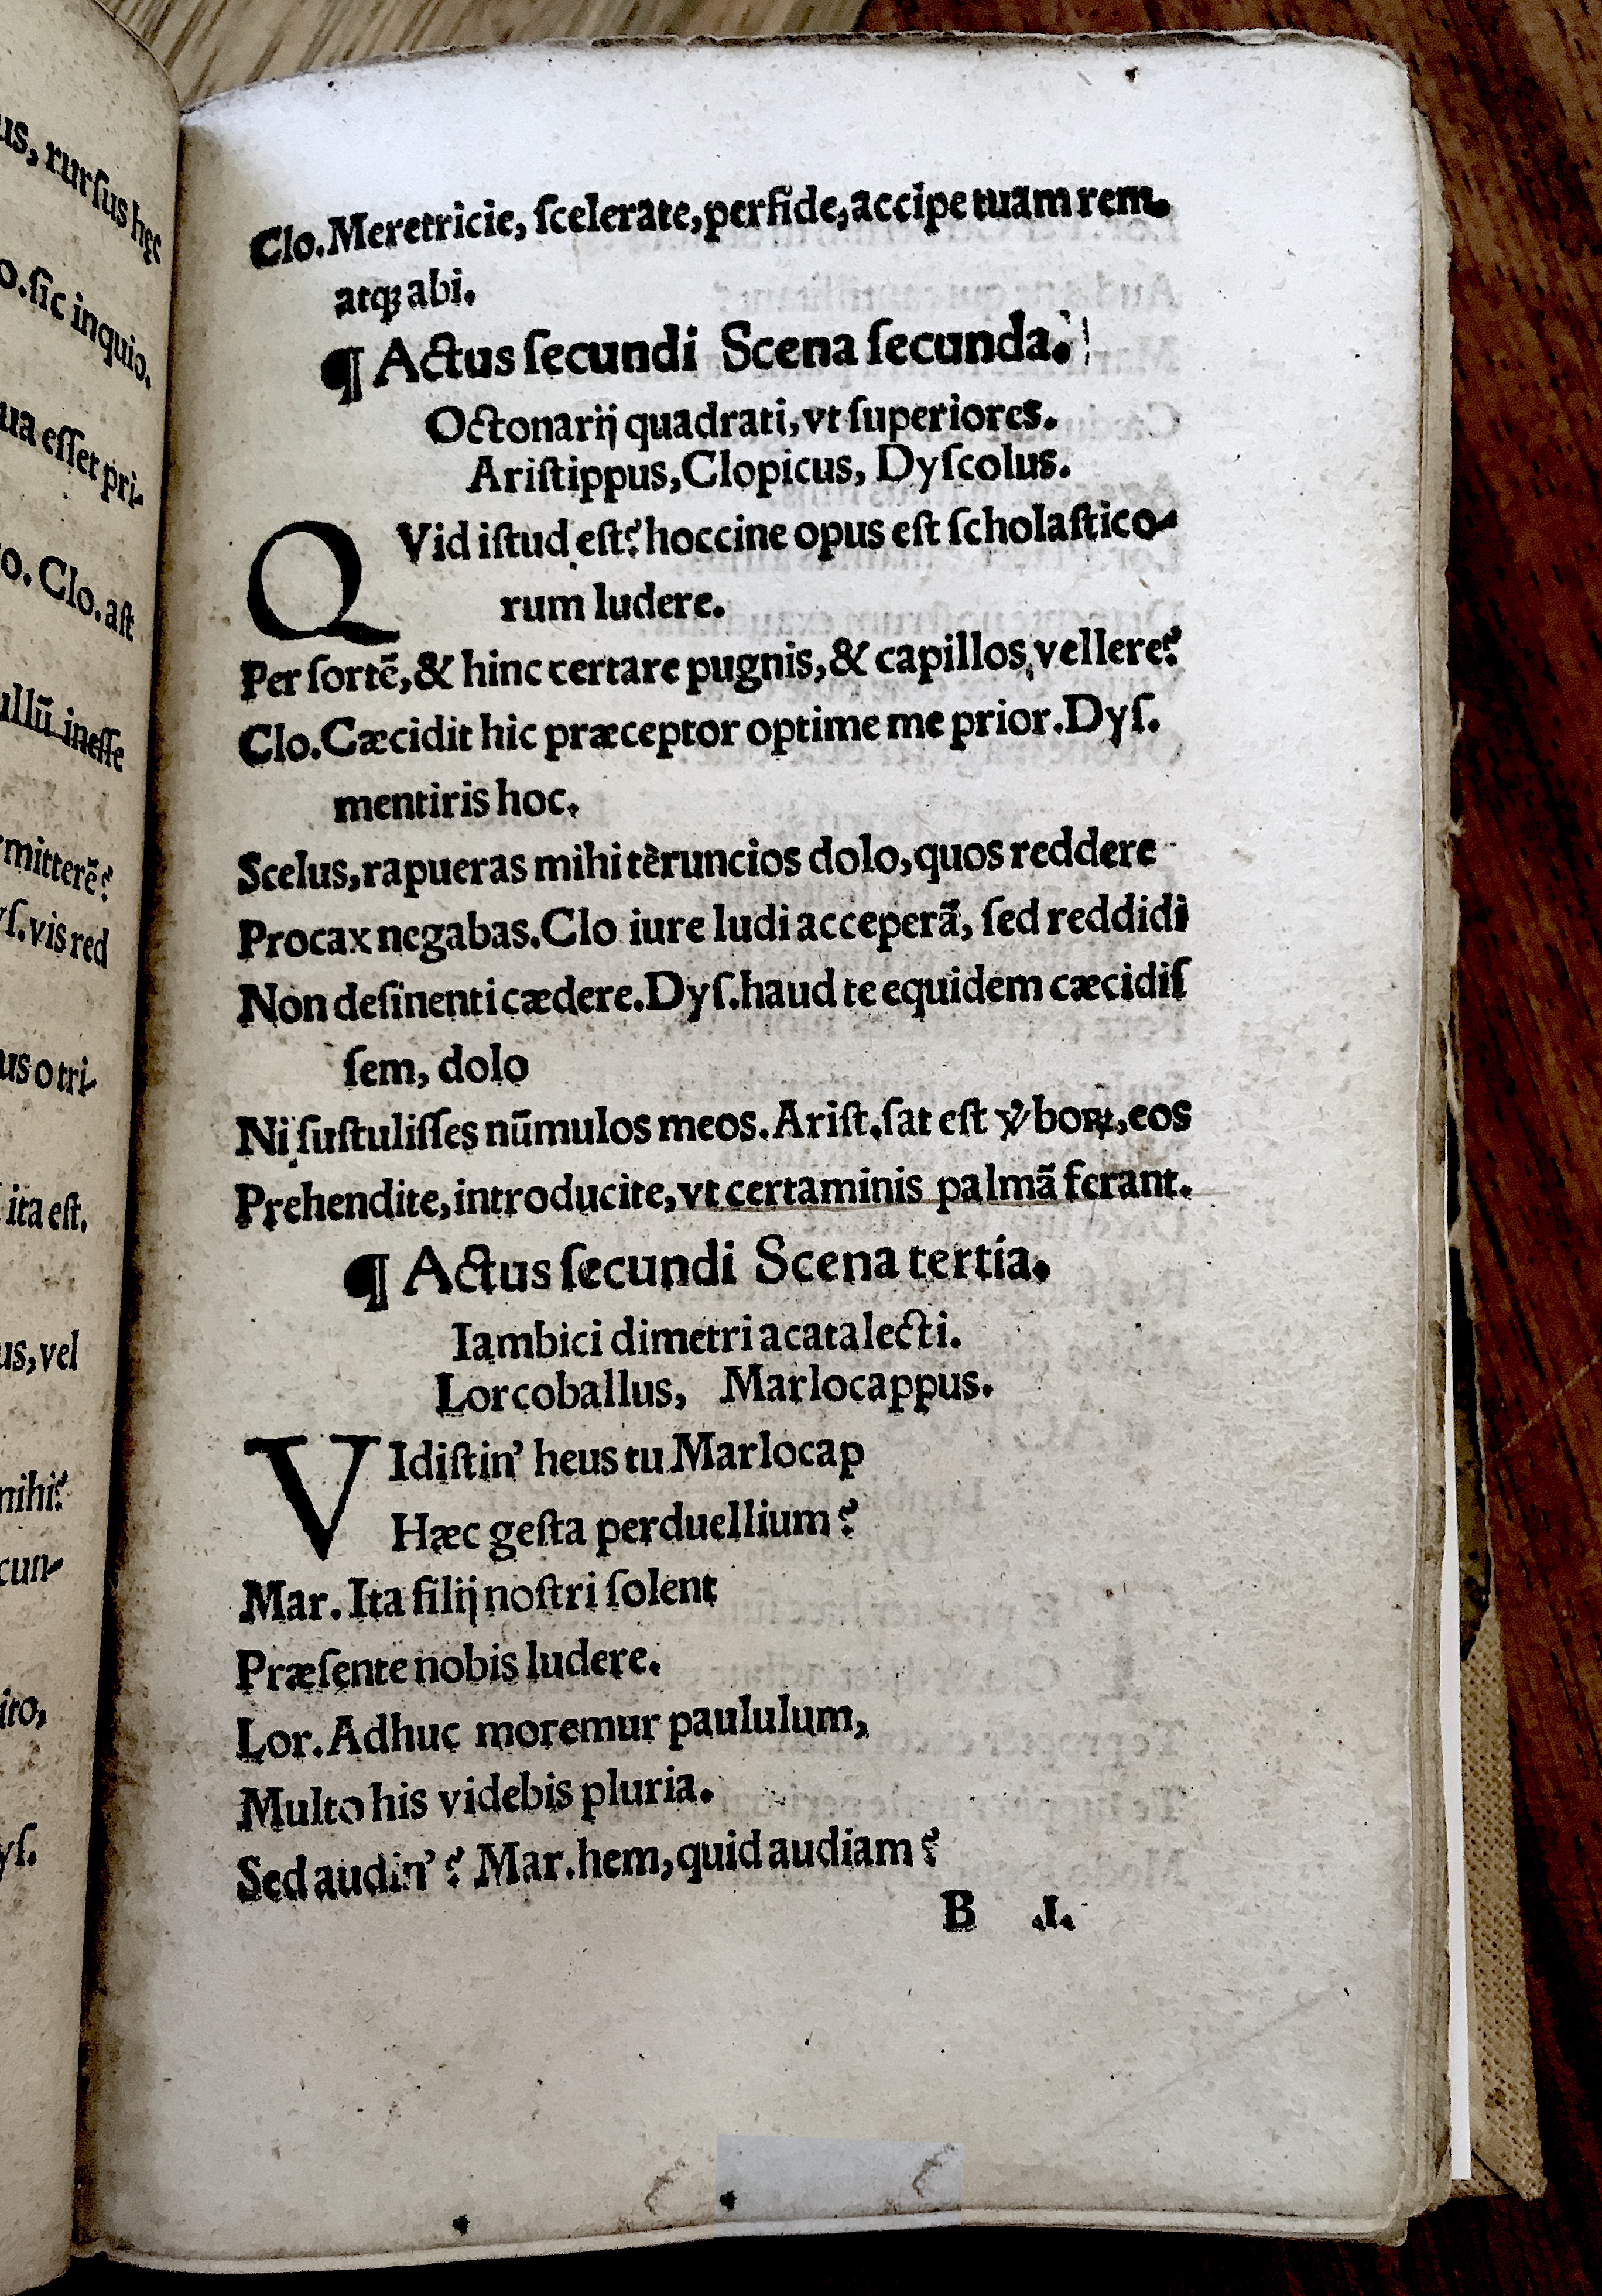 us, rurſus hęc
o. ſic inquio.
ua eſſet pri-
o. Clo. aſt
ullũ ineſſe
mitterẽ?
yſ. vis red
us o tri-
ita eſt.
us, vel
mihi?
cun-
ito,
yſ.
Clo. Meretricie, ſcelerate, perfide, accipe tuam rem.
atqꝫ abi.
¶ Actus ſecundi Scena ſecunda.
Octonarij quadrati, vt ſuperiores.
Ariſtippus, Clopicus, Dyſcolus.
QVid iſtud eſt? hoccine opus eſt ſcholaſtico-
rum ludere.
Per ſortẽ, & hinc certare pugnis, & capillos vellere?
Clo. Cæcidit hic præceptor optime me prior. Dyſ.
mentiris hoc.
Scelus, rapueras mihi tèruncios dolo, quos reddere
Procax negabas. Clo iure ludi acceperã, ſed reddidi
Non deſinenti cædere. Dyſ. haud te equidem cæcidiſ
ſem, dolo
Ni ſuſtuliſſes nũmulos meos. Ariſt. ſat eſt v̾boꝝ, eos
Prehendite, introducite, vt certaminis palmã ferant.
¶ Actus ſecundi Scena tertia.
Iambici dimetri acatalecti.
Lorcoballus, Marlocappus.
VIdiſtin' heus tu Marlocap
Hæc geſta perduellium?
Mar. Ita filij noſtri ſolent
Præſente nobis ludere.
Lor. Adhuc moremur paululum,
Multo his videbis pluria.
Sed audin'? Mar. hem, quid audiam?
B .I.